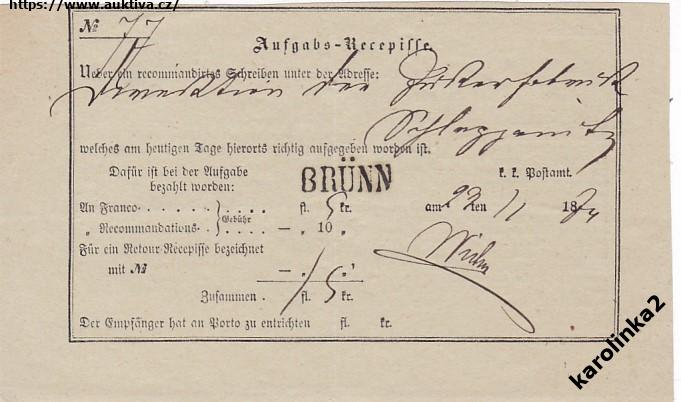 https://www.auktiva.cz/
№ 77
Aufgabs-Recepisse
Ueber ein recommandirtes Schreiben unter der Adresse:
Direction der Zuckerfabrik
Schlappanitz
welches am heutigen Tage hierorts richtig aufgegeben worden ist.
Dafür ist bei der Aufgabe bezahlt worden:
BRÜNN
k. k. Postamt.
An Franco . . . . . . fl. 5 kr.
am 22ten 11 1874
„ Recommandations- . Gebühr . . . . — „ 10 „
Für ein Retour-Recepisse bezeichnet
mit № — „ „
Zusammen . fl. 15 kr.
Der Empfänger hat an Porto zu entrichten fl. kr.
karolinka2